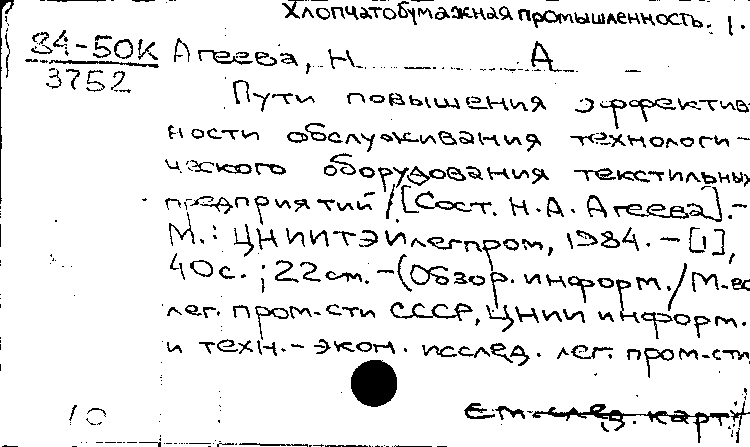 Хлопчатобумажная промышленность. 1.
84-50К Агеева, Н А
3752
Пути повышения эффектив
ности обслуживания технологи-
ческого оборудования текстильных
предприятий / [Сост. Н.А. Агеева]. -
М.: ЦНИИТЭИлегпром, 1984. - [1],
40с. ; 22см. - (Обзор. информ. / М-во
лег. пром-сти СССР, ЦНИИ информ.
и техн.-экон. исслед. лег. пром-сти
10 См. след. карт.